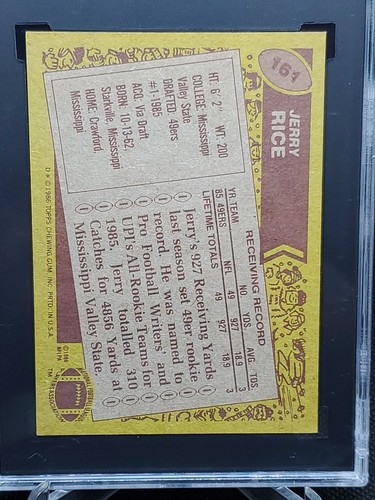 161
JERRY
RICE
HT: 6' 2" WT: 200
COLLEGE: Mississippi
Valley State
DRAFTED: 49ers
#1-1985
ACQ: Via Draft
BORN: 10-13-62,
Starkville, Mississippi
HOME: Crawford,
Mississippi
RECEIVING RECORD
YR. TEAM NO. YDS. AVG. TDS
85 49ERS 49 927 18.9 3
NFL
LIFETIME TOTALS 49 927 18.9 3
Jerry's 927 Receiving Yards
last season set 49er rookie
record. He was named to
Pro Football Writers' and
UPI's All-Rookie Teams for
1985. Jerry totalled 310
Catches for 4856 Yards at
Mississippi Valley State.
D * © 1986 TOPPS CHEWING GUM, INC. PRTD. IN U.S.A.
© 1986
NFLPA
TM